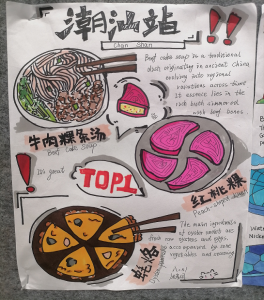 潮汕站
Chao Shan
Beef cake soup is a traditional
dish originating in ancient China
evolving into regional
variations across time
It essence lies in the
rich broth simmered
with beef bones
牛肉粿条汤
Beef Cake Soup
It's great
TOP1
红桃粿
Peach-shaped
蚝烙
The main ingredients
of oyster omelet are
fresh oysters and eggs,
accompanied by some
vegetables and